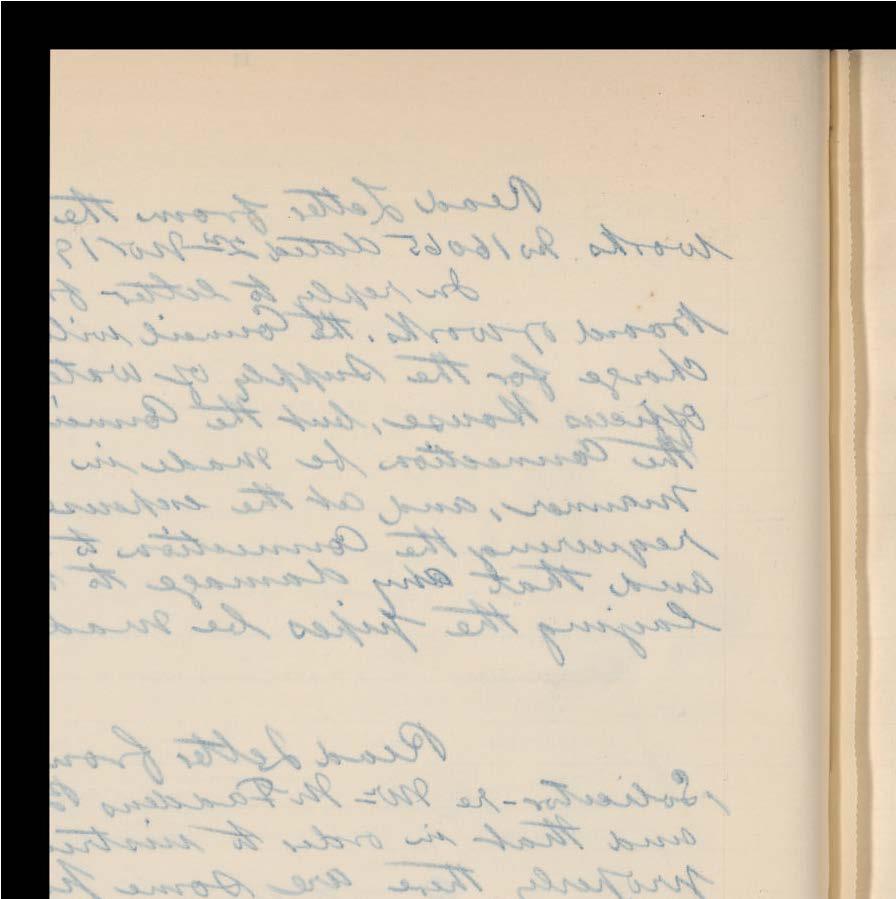 Read Letter from the
Works No 16065 dated 2nd Nov 19
In reply to letter
Board of Works. the Council wil
charge for the Supply of wat
officers house, but, the Counci
the Connection be made in
manner, and at the expense
requiring the Connection to
and that any damage to
laying the pipes be mad
Read Letter from
Solicitor - re Mr McFaddens
and that in order to
properly there are some